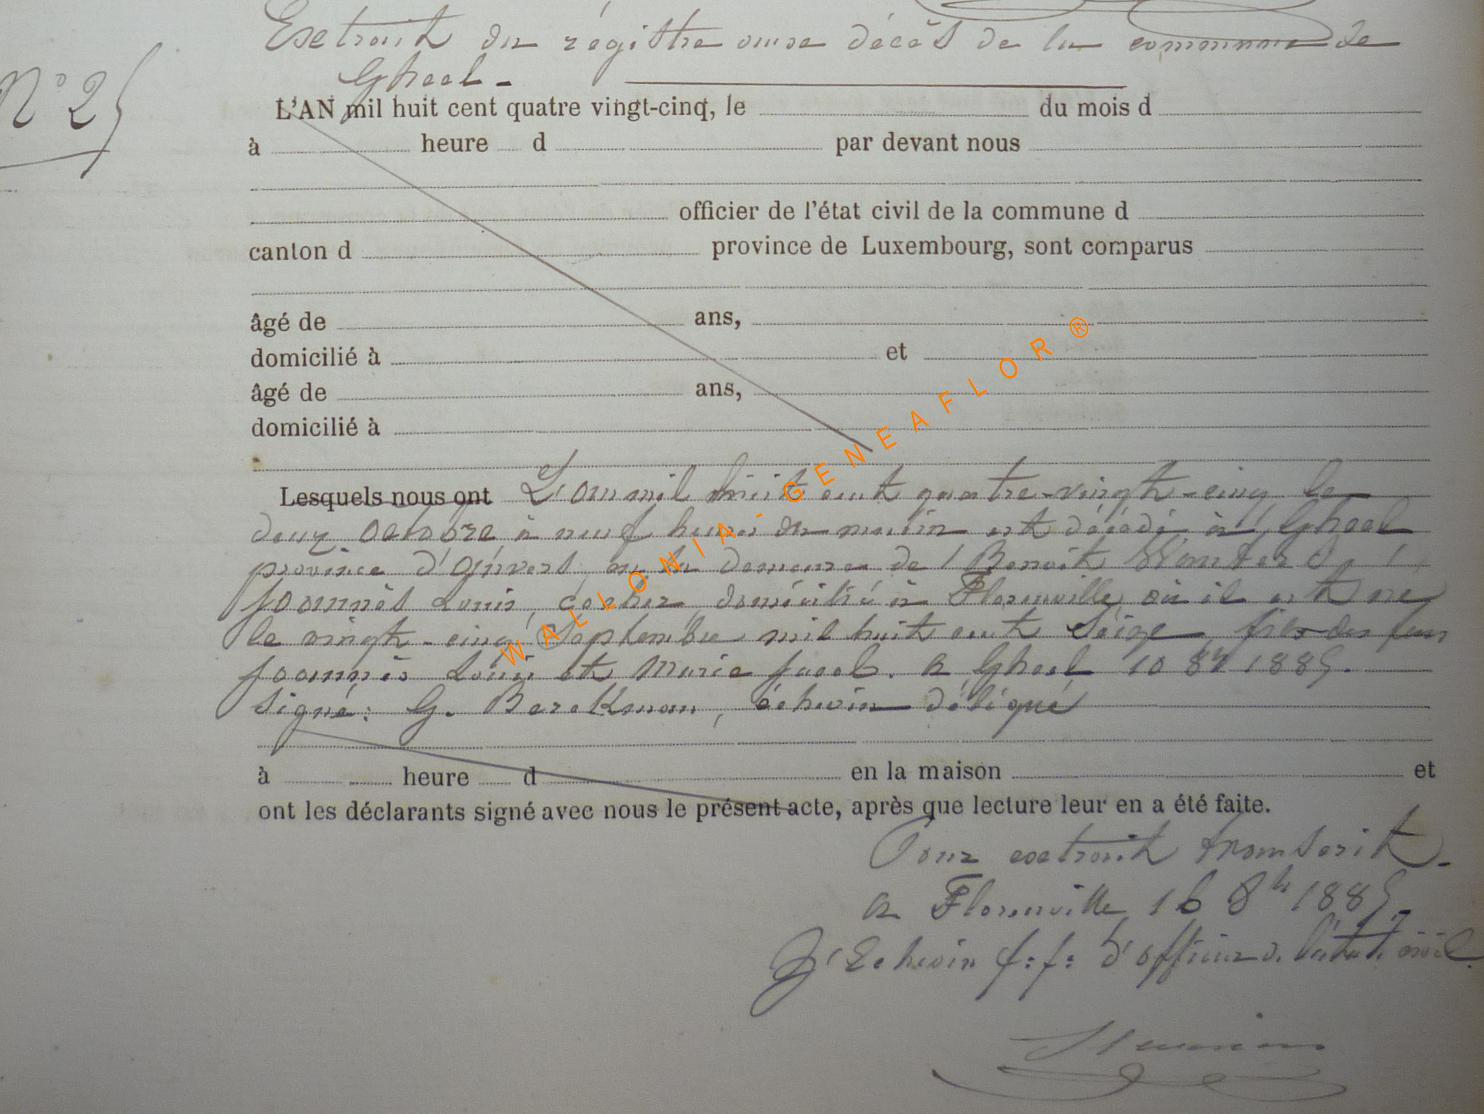 Extrait du régistre aux décès de la commune de
Gheel -
N° 25
L'AN mil huit cent quatre vingt-cinq, le du mois d
à heure d par devant nous
officier de l'état civil de la commune d
canton d province de Luxembourg, sont comparus
âgé de ans,
domicilié à et
âgé de ans,
domicilié à
Lesquels nous ont L'an mil huit cent quatre-vingt-cinq le
deux octobre à neuf heures du matin est décédé à Gheel
province d'Anvers, en la demeure de Benoit
Joannès Louis, cocher, domicilié à Florenville où il est né
le vingt-cinq Septembre mil huit cent Seize, fils des feu
Joannès Louis et Marie Jacob. A Gheel 10 8bre 1885.
Signé: G. Berckmans, échevin délégué
à heure d en la maison et
ont les déclarants signé avec nous le présent acte, après que lecture leur en a été faite.
Pour extrait transcrit -
A Florenville 16 8bre 1885
L'Echevin f:f: d'officier de l'état civil
WALLONIA - GENEAFLOR ®